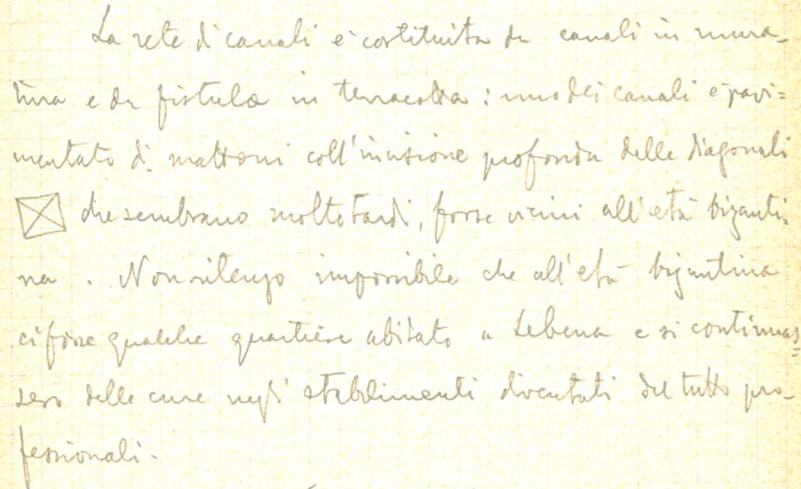 La rete di canali è costituita da canali in mura-
tura e da fistulae in terracotta: uno dei canali è pavi=
mentato di mattoni coll'incisione profonda delle diagonali
che sembrano molto tardi, forse vicini all'età bizanti-
na. Non ritengo impossibile che all'età bizantina
ci fosse qualche quartiere abitato a Lebena e si continuas=
sero delle cure negli stabilimenti diventati del tutto pro-
fessionali.